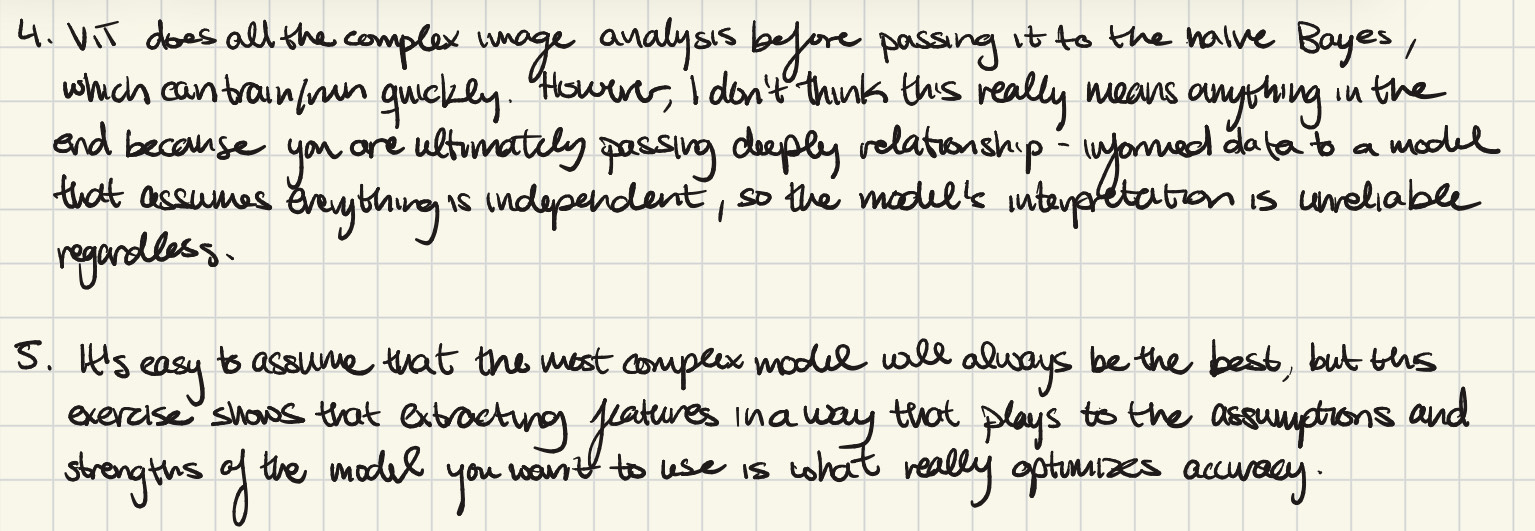 4. ViT does all the complex image analysis before passing it to the naive Bayes,
which can train/run quickly. However, I don't think this really means anything in the
end because you are ultimately passing deeply relationship-informed data to a model
that assumes everything is independent, so the model's interpretation is unreliable
regardless.
5. It's easy to assume that the most complex model will always be the best, but this
exercise shows that extracting features in a way that plays to the assumptions and
strengths of the model you want to use is what really optimizes accuracy.